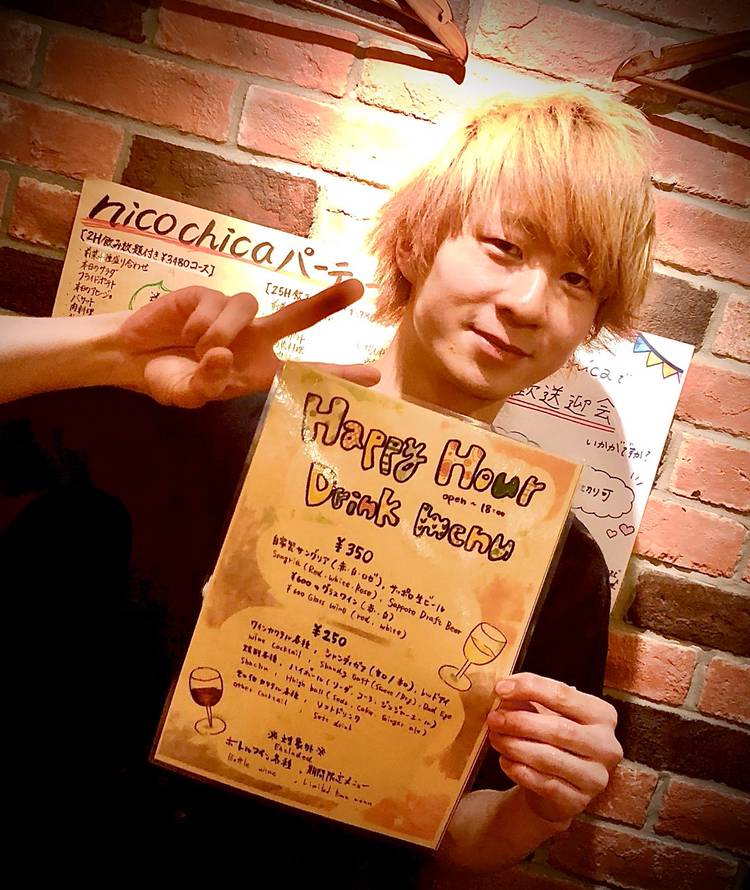 nicochicaパーティー
[2H飲み放題付き¥3480コース]
本日のサラダ
フライドポテト
バケット
肉料理
[2.5H飲
nicaで
歓送迎会
いかがですか?
Happy Hour
open ~ 18:00
Drink Menu
¥350
自家製サングリア(赤.白.ロゼ), サッポロ生ビール
Sangria (Red. white. Rose) , Sapporo Draft Beer
¥600のグラスワイン(赤.白)
¥600 Glass wine (red, white)
¥250
ワインカクテル各種 , シャンディガフ(甘口/辛口), レッドアイ
Wine Cocktail , Shandy Gaff (Sweet/Dry), Red Eye
焼酎各種 , ハイボール(ソーダ,コーラ,ジンジャーエール)
Shochu , High ball (Soda, Coke, Ginger ale)
その他カクテル各種 , ソフトドリンク
Other Cocktail , Soft drink
※対象外※
Excluded
ボトルワイン各種 , 期間限定メニュー
Bottle wine , Limited time menu